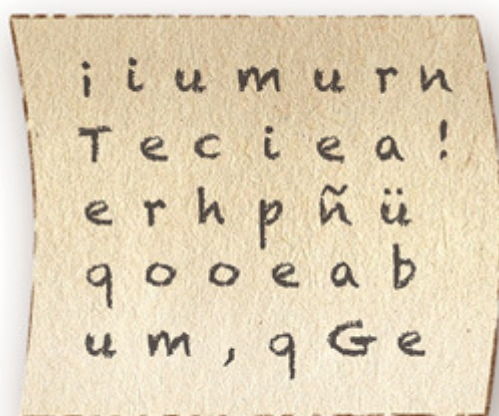 ¡ i u m u r n
T e c i e a !
e r h p ñ ü
q o o e a b
u m , q G e